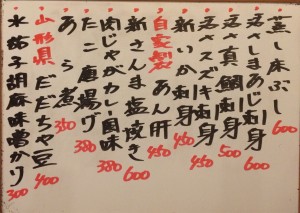 蒸し床ぶし 600
活〆しまあじ刺身 600
活〆真鯛刺身 500
活〆スズキ刺身 450
新いか刺身 450
自家製 あん肝 450
新さんま塩焼き 600
肉じゃがカレー風味 380
たこ唐揚げ 380
あら煮 350
山形県 だだちゃ豆 400
水茄子胡麻味噌かけ 300